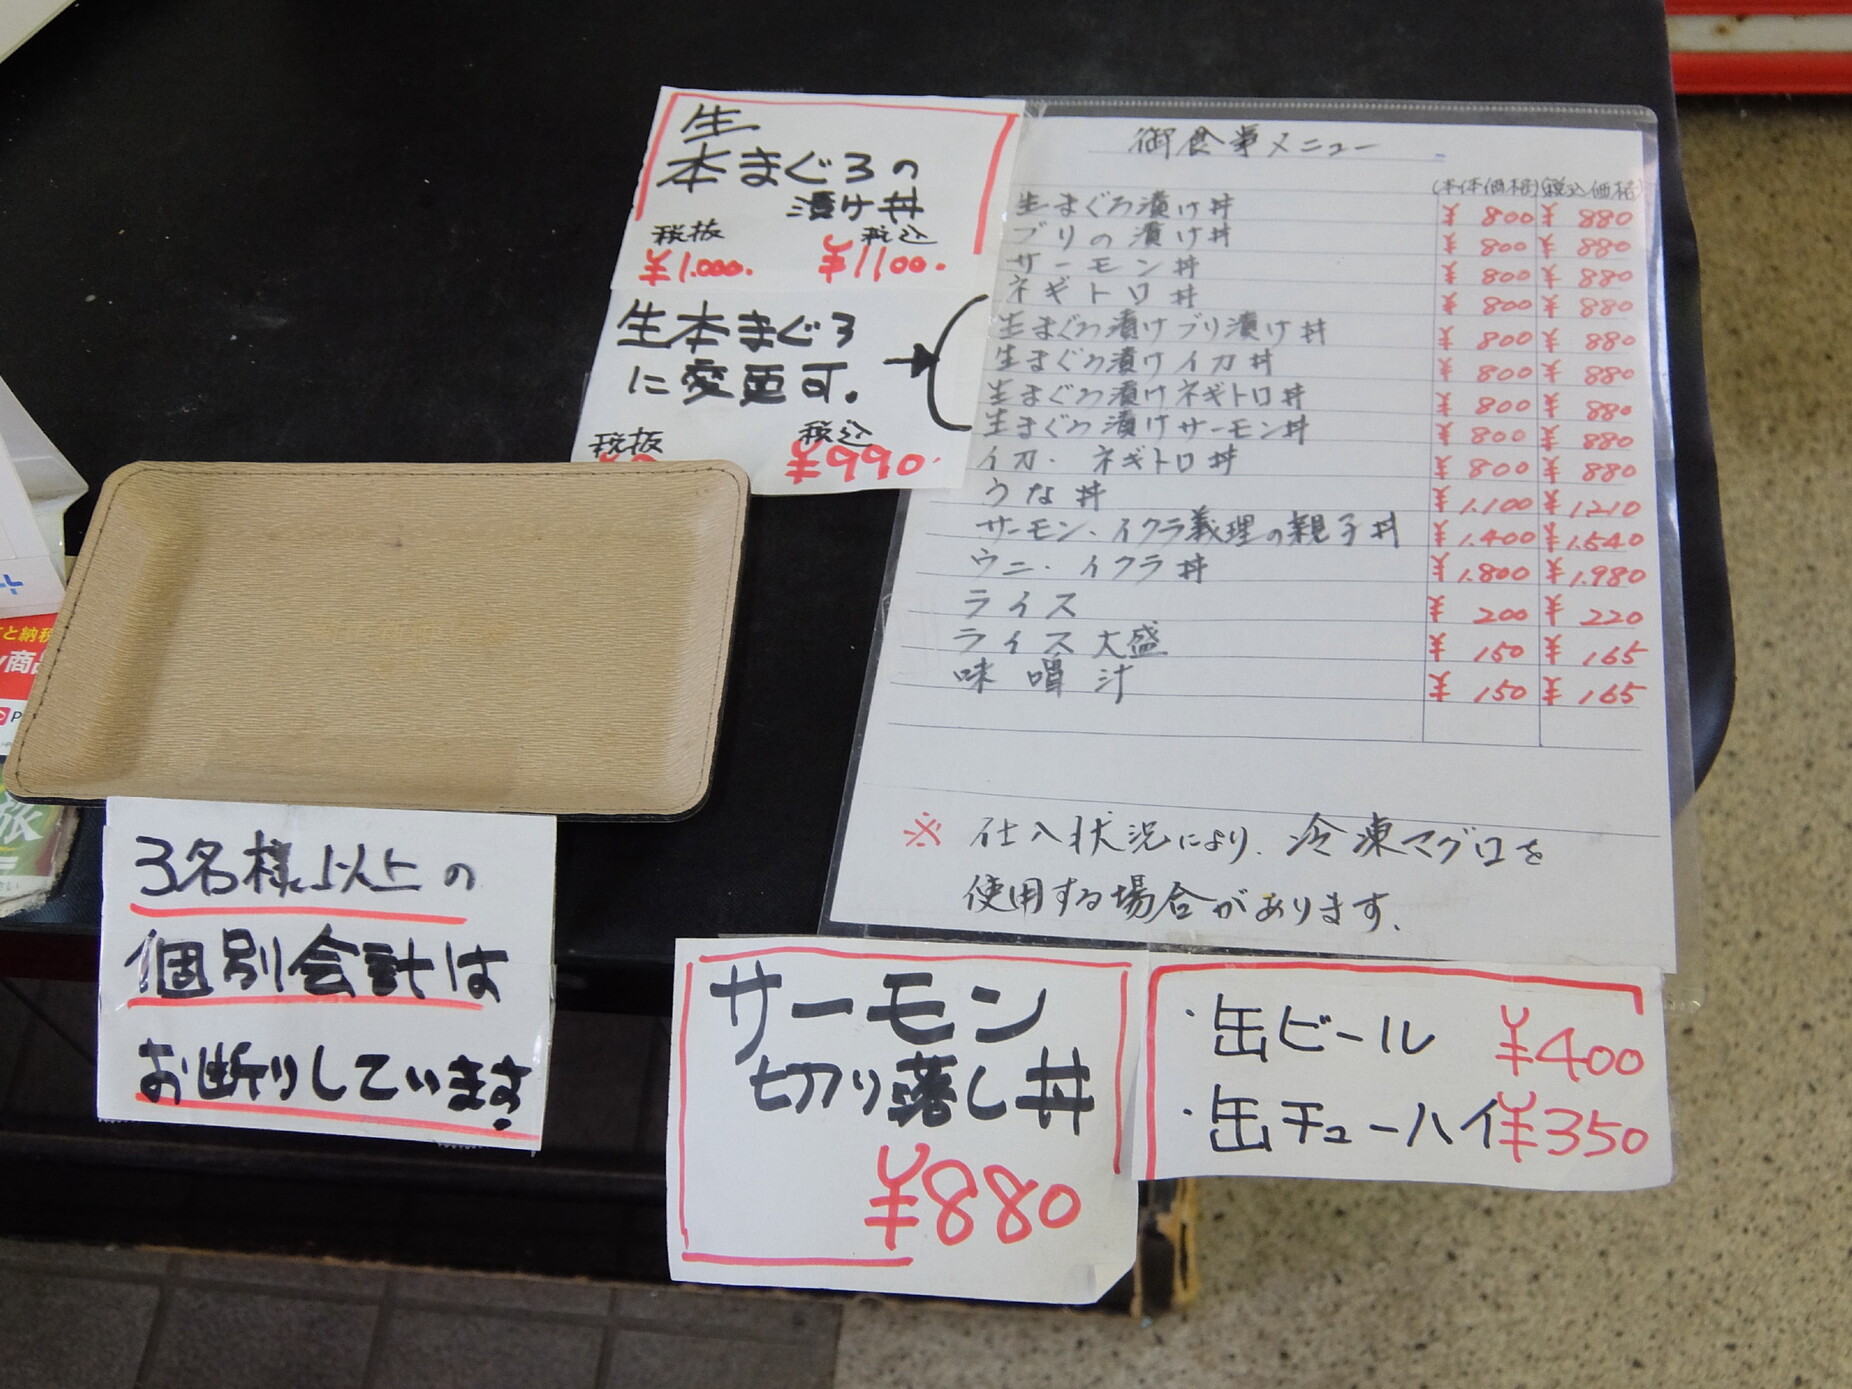 生
本まぐろの
漬け丼
税抜 税込
¥1.000. ¥1100.
生本まぐろ
に変更可.
税抜 税込
¥990.
御食事メニュー
(本体価格) (税込価格)
生まぐろ漬け丼 ¥800 ¥880
ブリの漬け丼 ¥800 ¥880
サーモン丼 ¥800 ¥880
ネギトロ丼 ¥800 ¥880
生まぐろ漬けブリ漬け丼 ¥800 ¥880
生まぐろ漬けイカ丼 ¥800 ¥880
生まぐろ漬けネギトロ丼 ¥800 ¥880
生まぐろ漬けサーモン丼 ¥800 ¥880
イカ・ネギトロ丼 ¥800 ¥880
うな丼 ¥1.100 ¥1210
サーモン、イクラ義理の親子丼 ¥1.400 ¥1.540
ウニ・イクラ丼 ¥1.800 ¥1.980
ライス ¥200 ¥220
ライス大盛 ¥150 ¥165
味噌汁 ¥150 ¥165
※ 仕入状況により、冷凍マグロを
使用する場合があります.
3名様以上の
個別会計は
お断りしています!
サーモン
切り落し丼
¥880
・缶ビール ¥400
・缶チューハイ ¥350
と納税
商品
旅